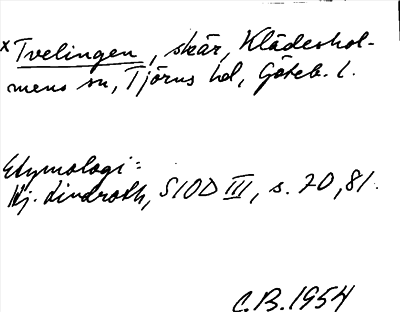 x Tvelingen, skär, Klädeshol-
mens sn, Tjörns hd, Göteb. l.
Etymologi:
Hj. Lindroth, SIOD III, s. 70, 81.
C.B. 1954